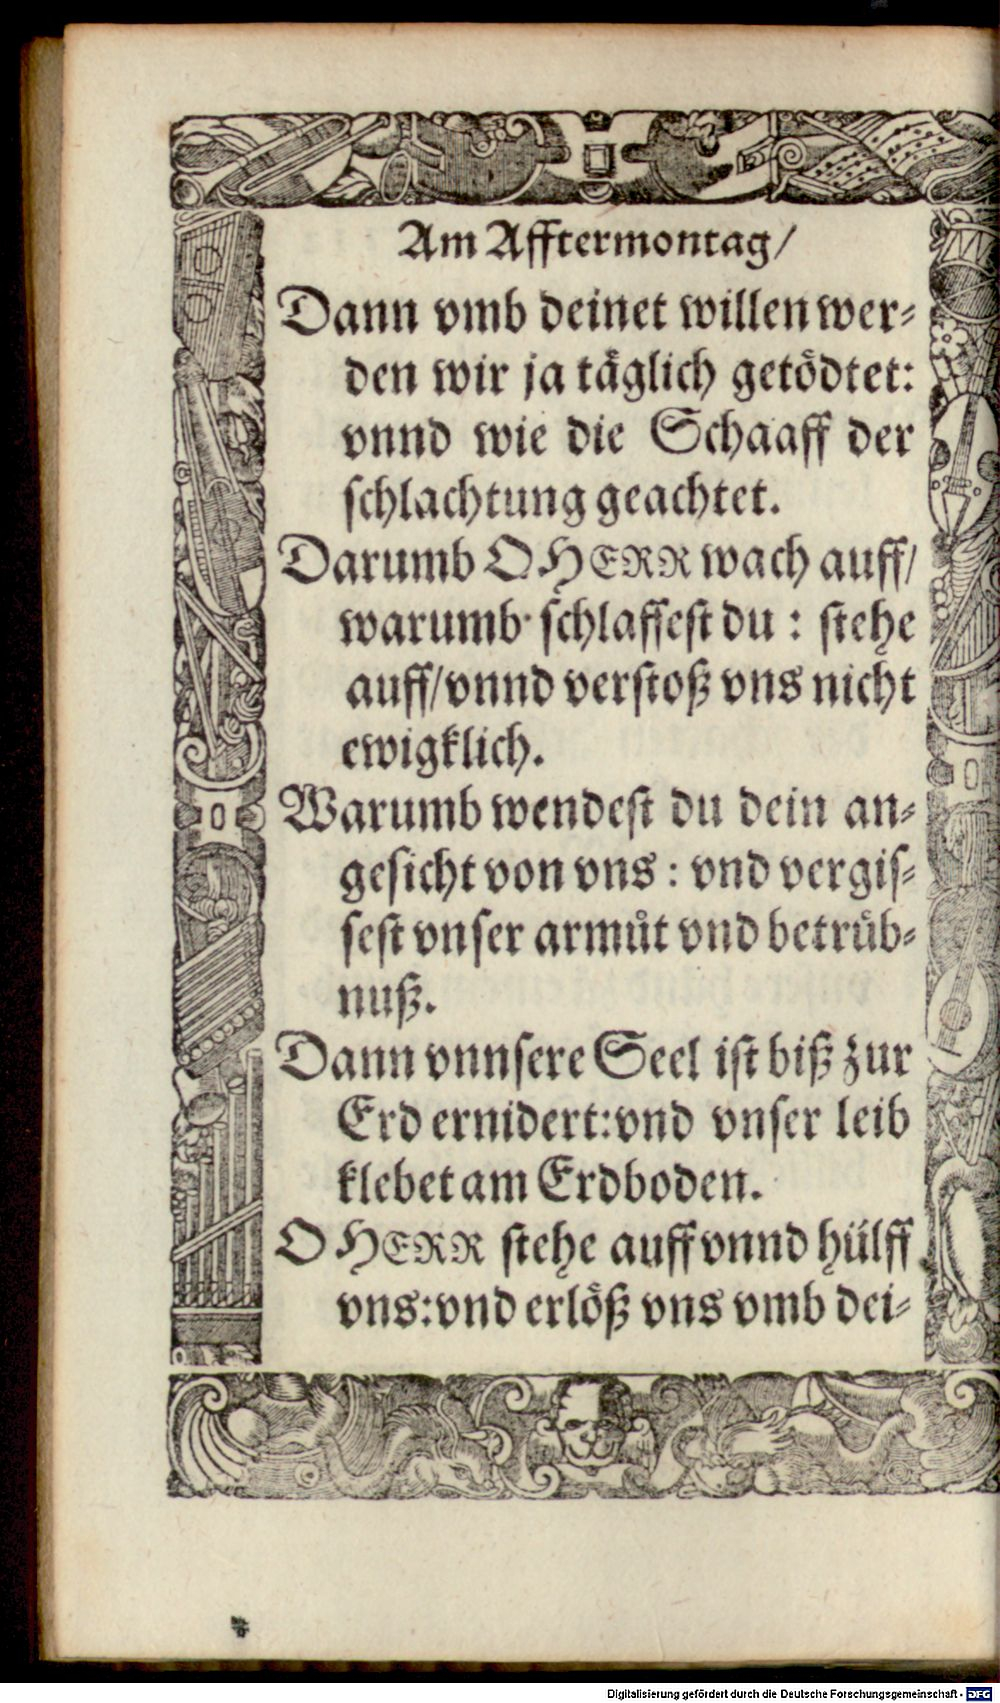 Am Afftermontag/
Dann vmb deinet willen wer⸗
den wir ja täglich getödtet:
vnnd wie die Schaaff der
schlachtung geachtet.
Darumb O HERR wach auff/
warumb schlaffest du : stehe
auff/vnnd verstoß vns nicht
ewigklich.
Warumb wendest du dein an⸗
gesicht von vns : vnd vergis⸗
sest vnser armůt vnd betrüb⸗
nuß.
Dann vnnsere Seel ist biß zur
Erd ernidert:vnd vnser leib
klebet am Erdboden.
O HERR stehe auff vnnd hülff
vns:vnd erlöß vns vmb dei⸗
Digitalisierung gefördert durch die Deutsche Forschungsgemeinschaft - DFG